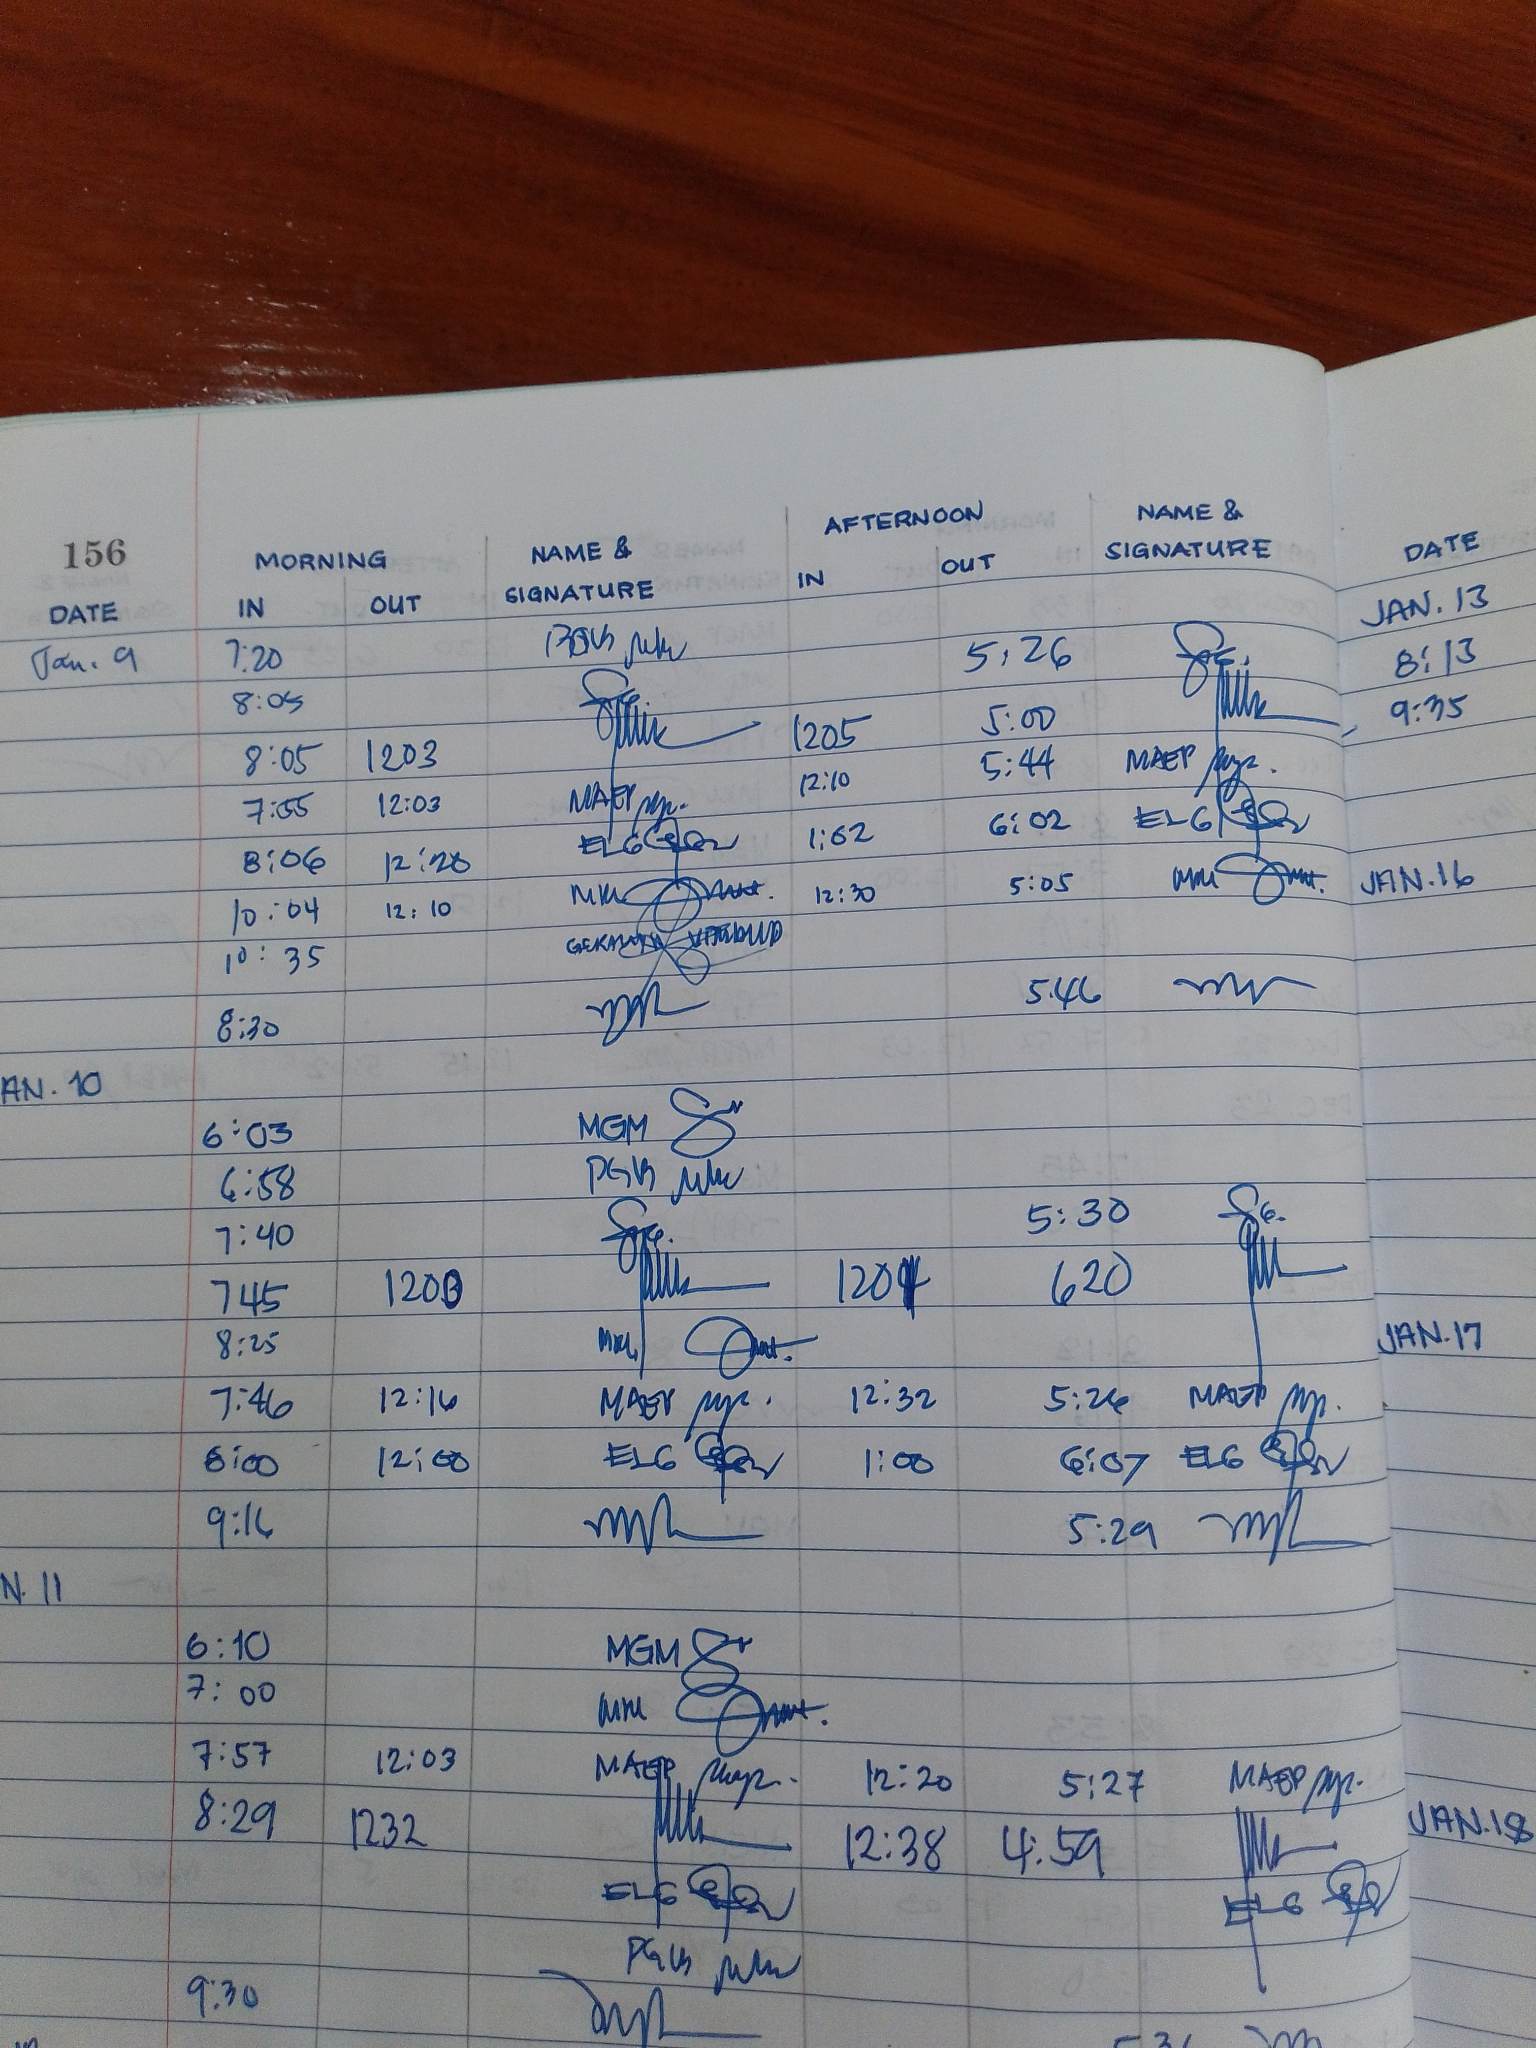 156
MORNING NAME & AFTERNOON NAME &
DATE IN OUT SIGNATURE IN OUT SIGNATURE DATE
Jan. 9 7:20 5:26 JAN. 13
8:05 8:13
8:05 1203 1205 5:00 9:35
7:55 12:03 MAEP 12:10 5:44 MAEP
8:06 12:20 ELG 1:02 6:02 ELG
10:04 12:10 12:30 5:05 JAN. 16
10:35
8:30 5:46
AN. 10
6:03 MGM
6:58 PGB
7:40 5:30
745 1203 1204 620
8:25 JAN. 17
7:46 12:16 MAEP 12:32 5:26 MAEP
8:00 12:00 ELG 1:00 6:07 ELG
9:16 5:29
N. 11
6:10 MGM
7:00
7:57 12:03 MAEP 12:20 5:27 MAEP
8:29 1232 12:38 4:59 JAN. 18
ELG ELG
PGB
9:30